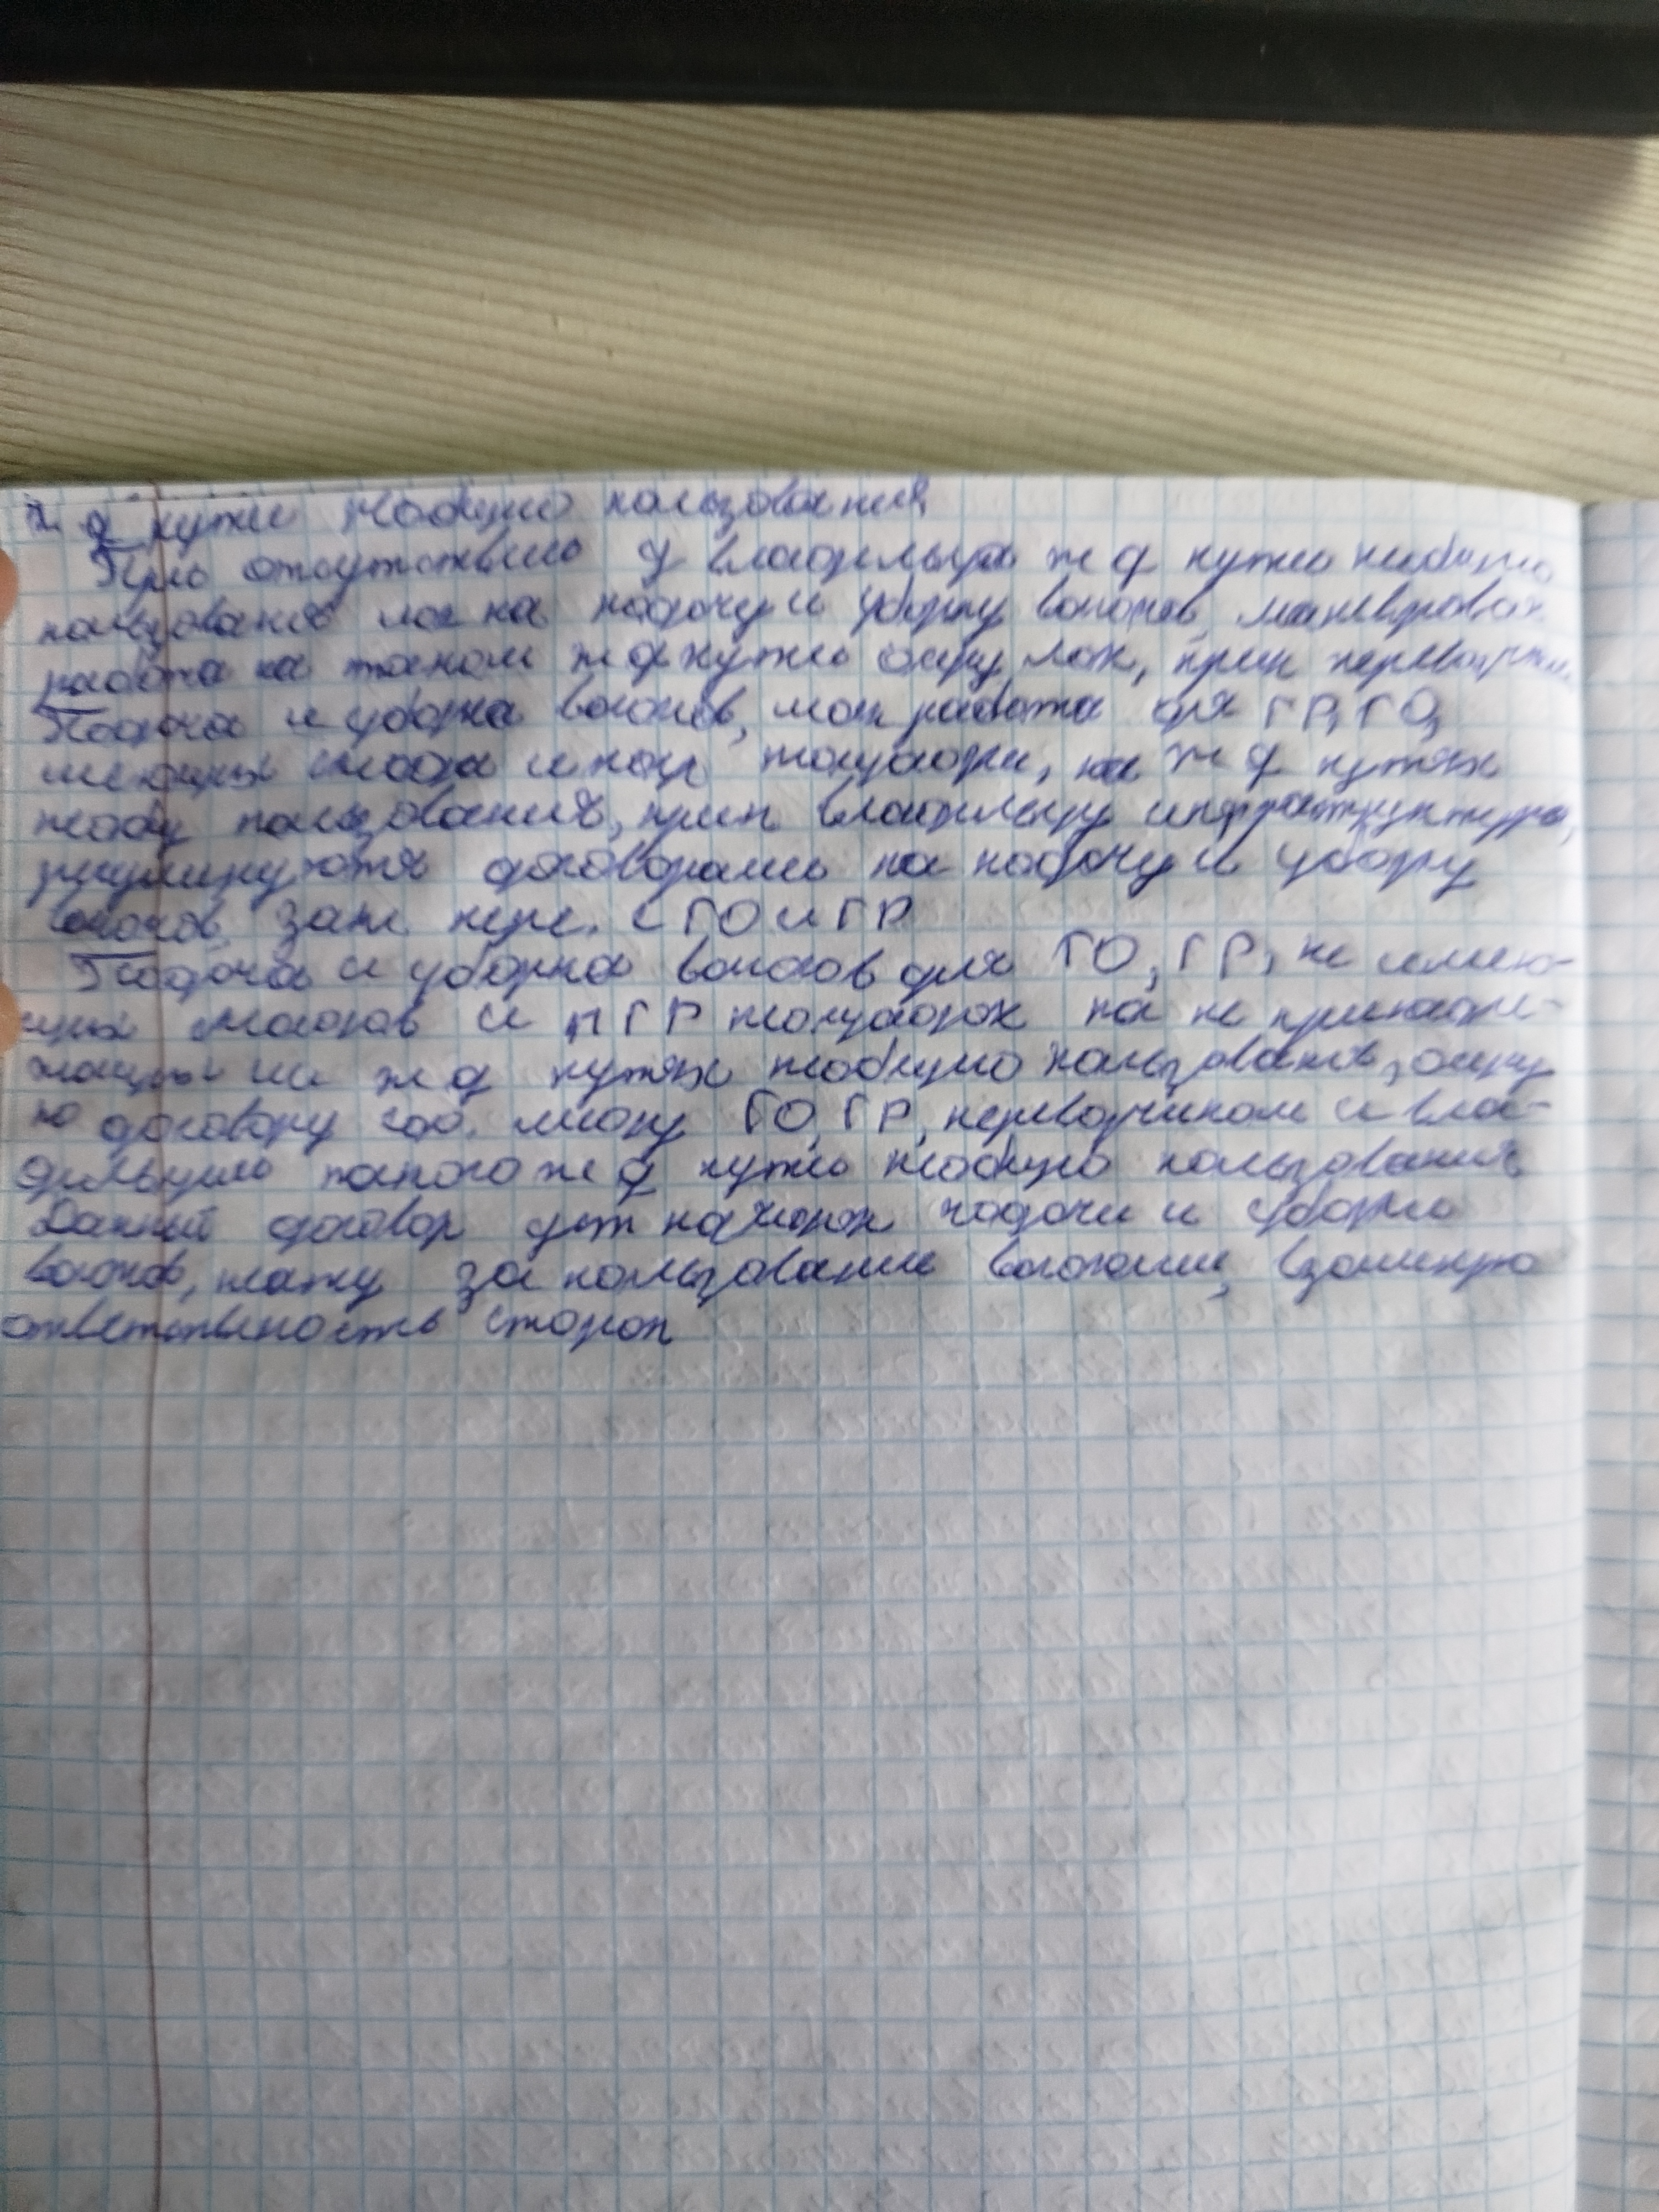 ж д пути необщего пользования
При отсутствии у владельца ж д пути необщего
пользования лок на подачу и уборку вагонов, маневровая
работа на таком ж д пути осущ лок, прин перевозчику
Подача и уборка вагонов, ман работа для ГР, ГО,
имеющих склада и погр площадки, на ж д путях
необщ пользования, прин владельцу инфраструктуры,
регулируются договорами на подачу и уборку
вагонов, зак пере. с ГО и ГР
Подача и уборка вагонов для ГО, ГР, не имею-
щих складов и ПГР площадок на не принадле-
жащих им ж д путях необщего пользования, осущ
по договору соб. между ГО, ГР, перевозчиком и вла-
дельцем такого ж д пути необщего пользования
Данный договор уст порядок подачи и уборки
вагонов, плату за пользование вагонами,
ответственность сторон